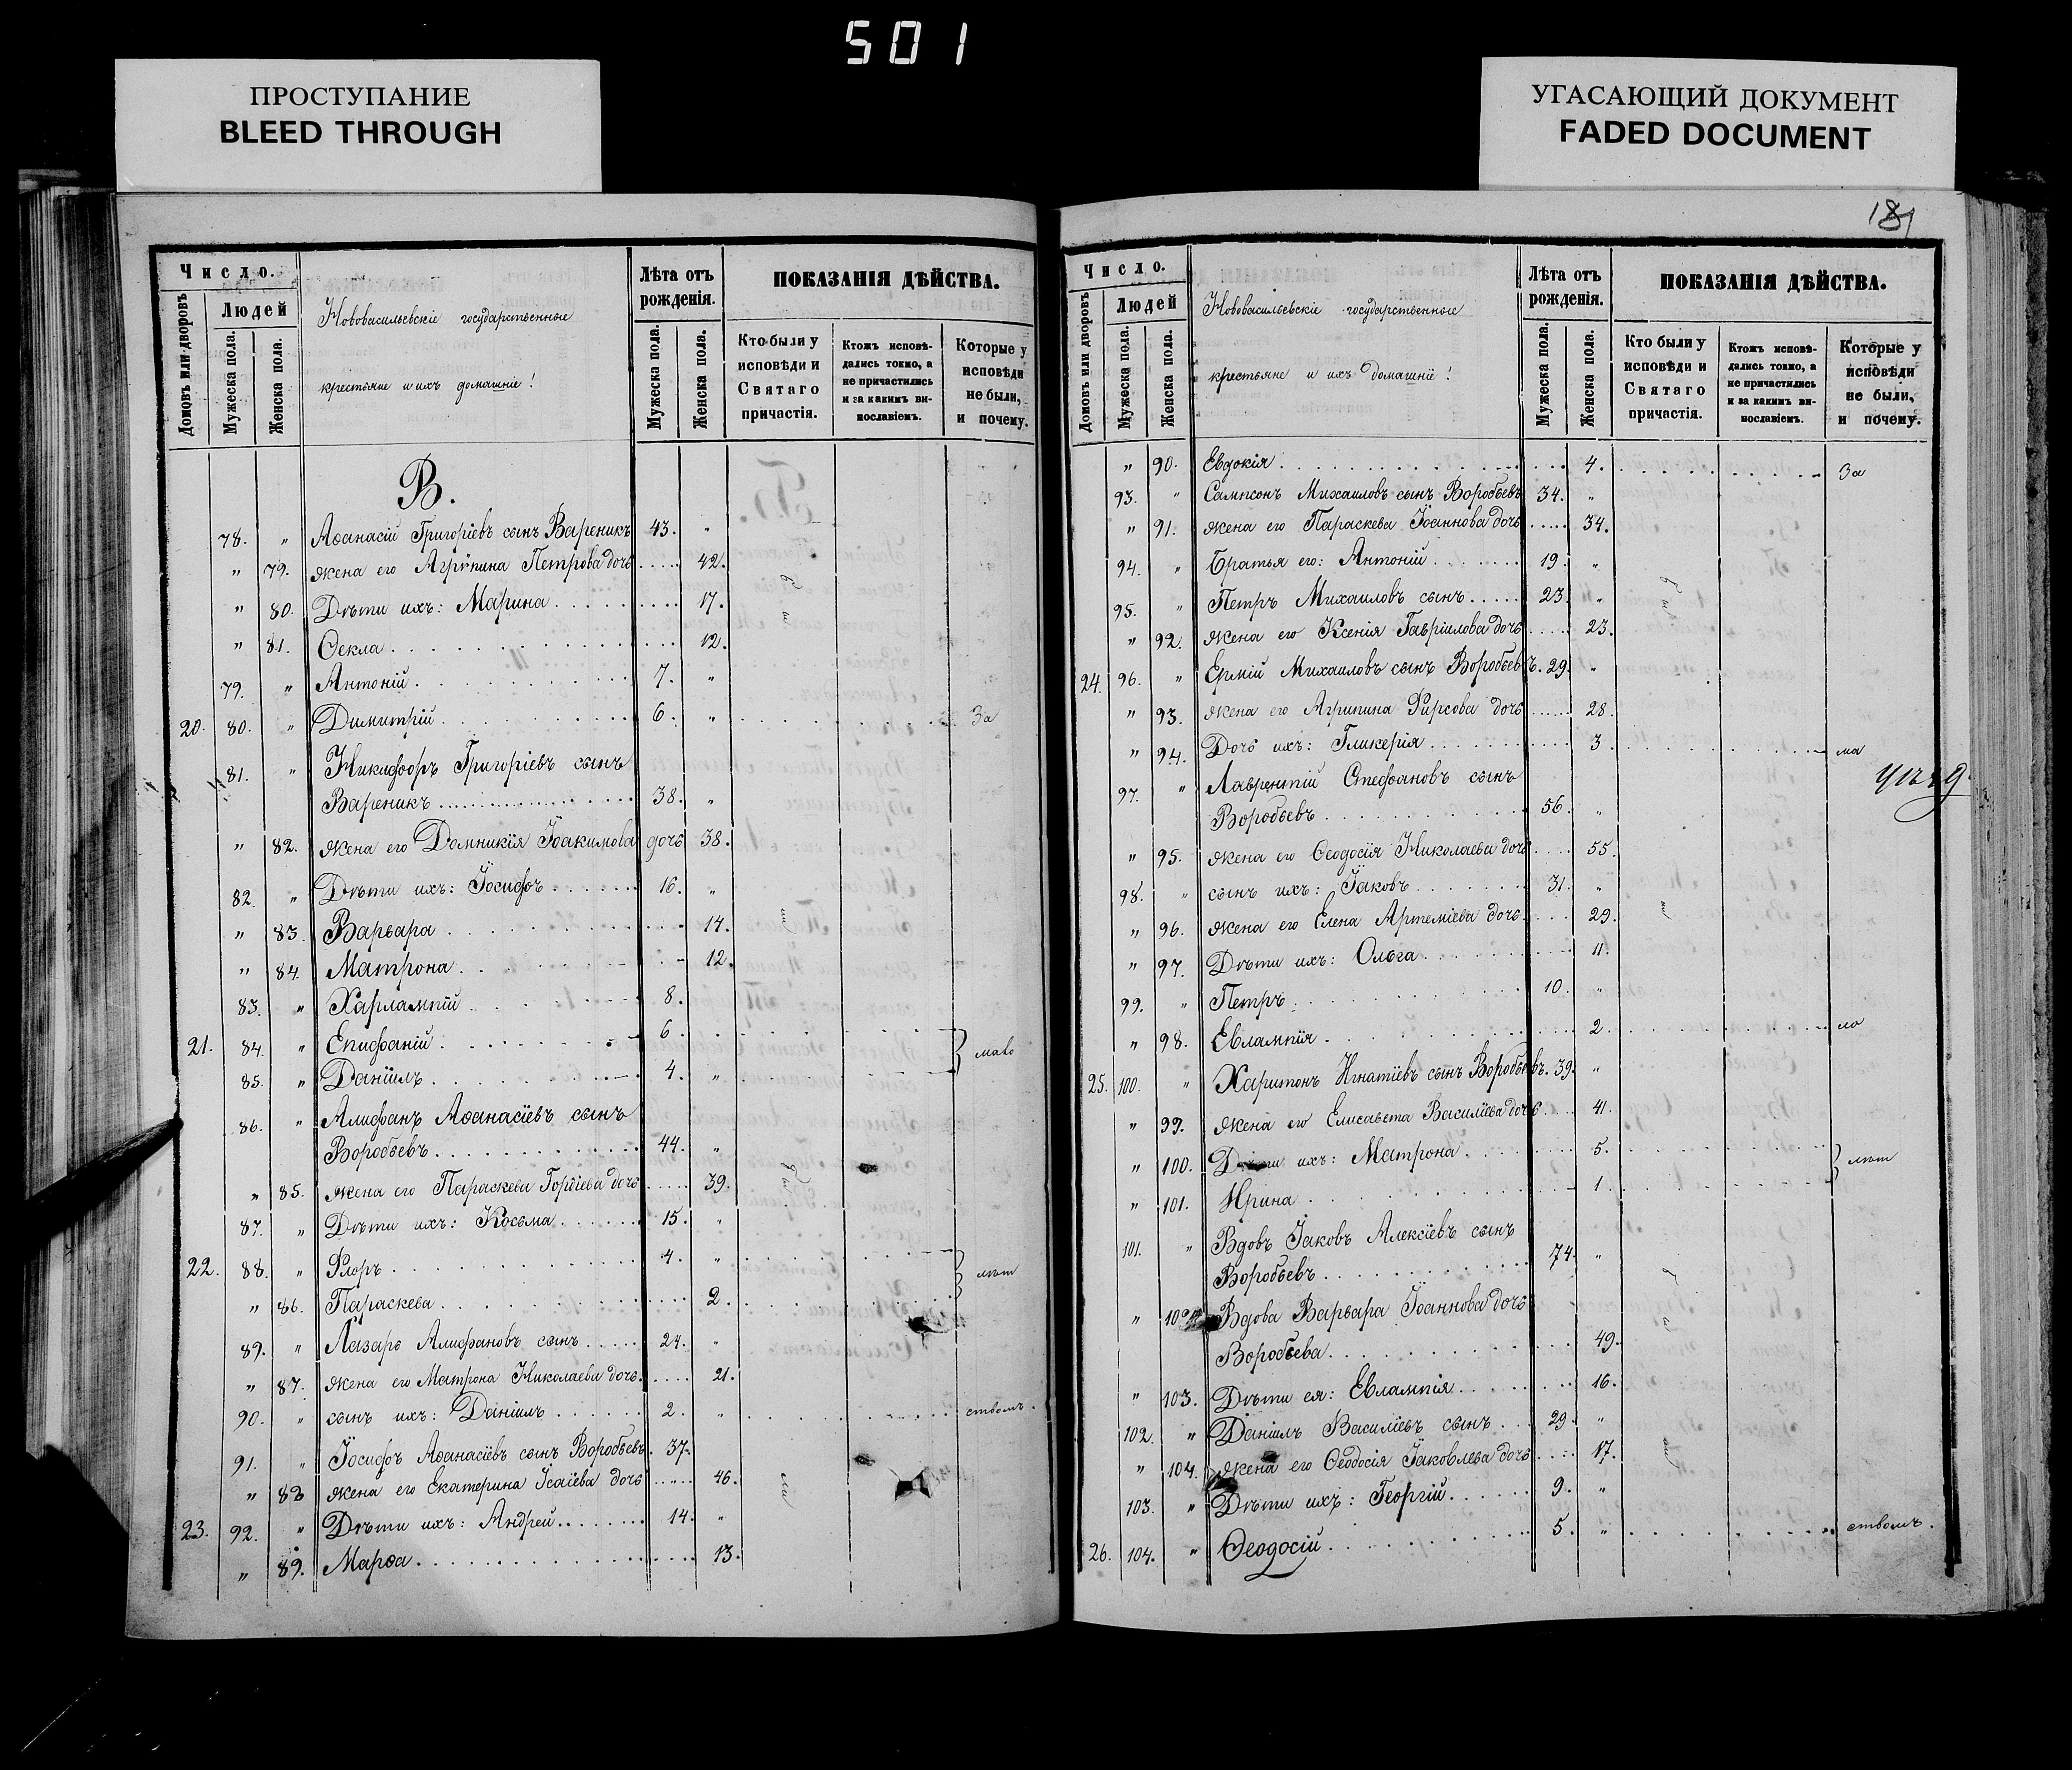 501
ПРОСТУПАНИЕ
BLEED THROUGH
УГАСАЮЩИЙ ДОКУМЕНТ
FADED DOCUMENT
Число.
Домовъ или дворовъ
Людей
Мужеска пола.
Женска пола.
Нововасильевскіе государственные
крестьяне и ихъ домашніе!
Лѣта отъ рожденія.
Мужеска пола.
Женска пола.
ПОКАЗАНІЯ ДѢЙСТВА.
Кто были у исповѣди и Святаго причастія.
Ктожъ исповѣдались токмо, а не причастились и за какимъ винословіемъ.
Которые у исповѣди не были, и почему.
В.
78. " Аѳанасій Григоріевъ сынъ Вареникъ 43. "
" 79. жена его Агрипина Петрова дочь 42.
" 80. Дѣти ихъ: Марина 17.
" 81. Ѳекла 12.
79. " Антоній 7. "
20. 80. " Димитрій 6. " За
81. " Никифоръ Григоріевъ сынъ
Вареникъ 38. "
" 82. жена его Домникія Іоакимова дочь 38.
82. " Дѣти ихъ: Іосифъ 16. "
" 83. Варвара 14.
" 84. Матрона 12.
83. " Харлампій 8.
21. 84. " Епифаній 6.
85. " Даніилъ 4. " мало
86. " Алифанъ Аѳанасіевъ сынъ
Воробьевъ 44. "
" 85. жена его Параскева Гордіева дочь 39.
87. " Дѣти ихъ: Косьма 15. "
22. 88. " Флоръ 4. "
" 86. Параскева 2. лѣт
89. " Лазарь Алифановъ сынъ 24. "
" 87. жена его Матрона Николаева дочь 21.
90. " сынъ ихъ: Даніилъ 2. " ствомъ.
91. " Іосифъ Аѳанасіевъ сынъ Воробьевъ 37.
" 88 жена его Екатерина Ісаіева дочь 46.
23. 92. " Дѣти ихъ: Андрей 14. "
" 89. Марѳа 13.
181
Число.
Домовъ или дворовъ
Людей
Мужеска пола.
Женска пола.
Нововасильевскіе государственные
крестьяне и ихъ домашніе!
Лѣта отъ рожденія.
Мужеска пола.
Женска пола.
ПОКАЗАНІЯ ДѢЙСТВА.
Кто были у исповѣди и Святаго причастія.
Ктожъ исповѣдались токмо, а не причастились и за какимъ винословіемъ.
Которые у исповѣди не были, и почему.
" 90. Евдокія 4. За
93. " Сампсонъ Михаиловъ сынъ Воробьевъ 34. "
" 91. жена его Параскева Іоаннова дочь 34.
94. " Братья его: Антоній 19. "
95. " Петръ Михаиловъ сынъ 23. "
" 92. жена его Ксенія Гавріилова дочь 23.
24. 96. " Ермій Михаиловъ сынъ Воробьевъ. 29. "
" 93. жена его Агрипина Фирсова дочь 28.
" 94. Дочь ихъ: Гликерія 3. ма
97. " Лаврентій Стефановъ сынъ
Воробьевъ 56. "
" 95. жена его Ѳеодосія Николаева дочь 55.
98. " сынъ ихъ: Іаковъ 31. "
" 96. жена его Елена Артеміева дочь 29.
" 97. Дѣти ихъ: Ольга 11.
99. " Петръ 10. "
" 98. Евлампія 2. ло
25. 100. " Харитонъ Игнатіевъ сынъ Воробьевъ. 39. "
" 99. жена его Елисавета Василіева дочь 41.
" 100. Дѣти ихъ: Матрона 5.
" 101. Ирина 1. лѣт
101. " Вдовъ Іаковъ Алексіевъ сынъ
Воробьевъ 74. "
" 102 Вдова Варвара Іоаннова дочь
Воробьева 49.
" 103. Дѣти ея: Евлампія 16.
102. " Даніилъ Василіевъ сынъ 29. "
" 104. жена его Ѳеодосія Іаковлева дочь 17.
103. " Дѣти ихъ: Георгій 9. "
26. 104. " Ѳеодосій 5. " ствомъ.